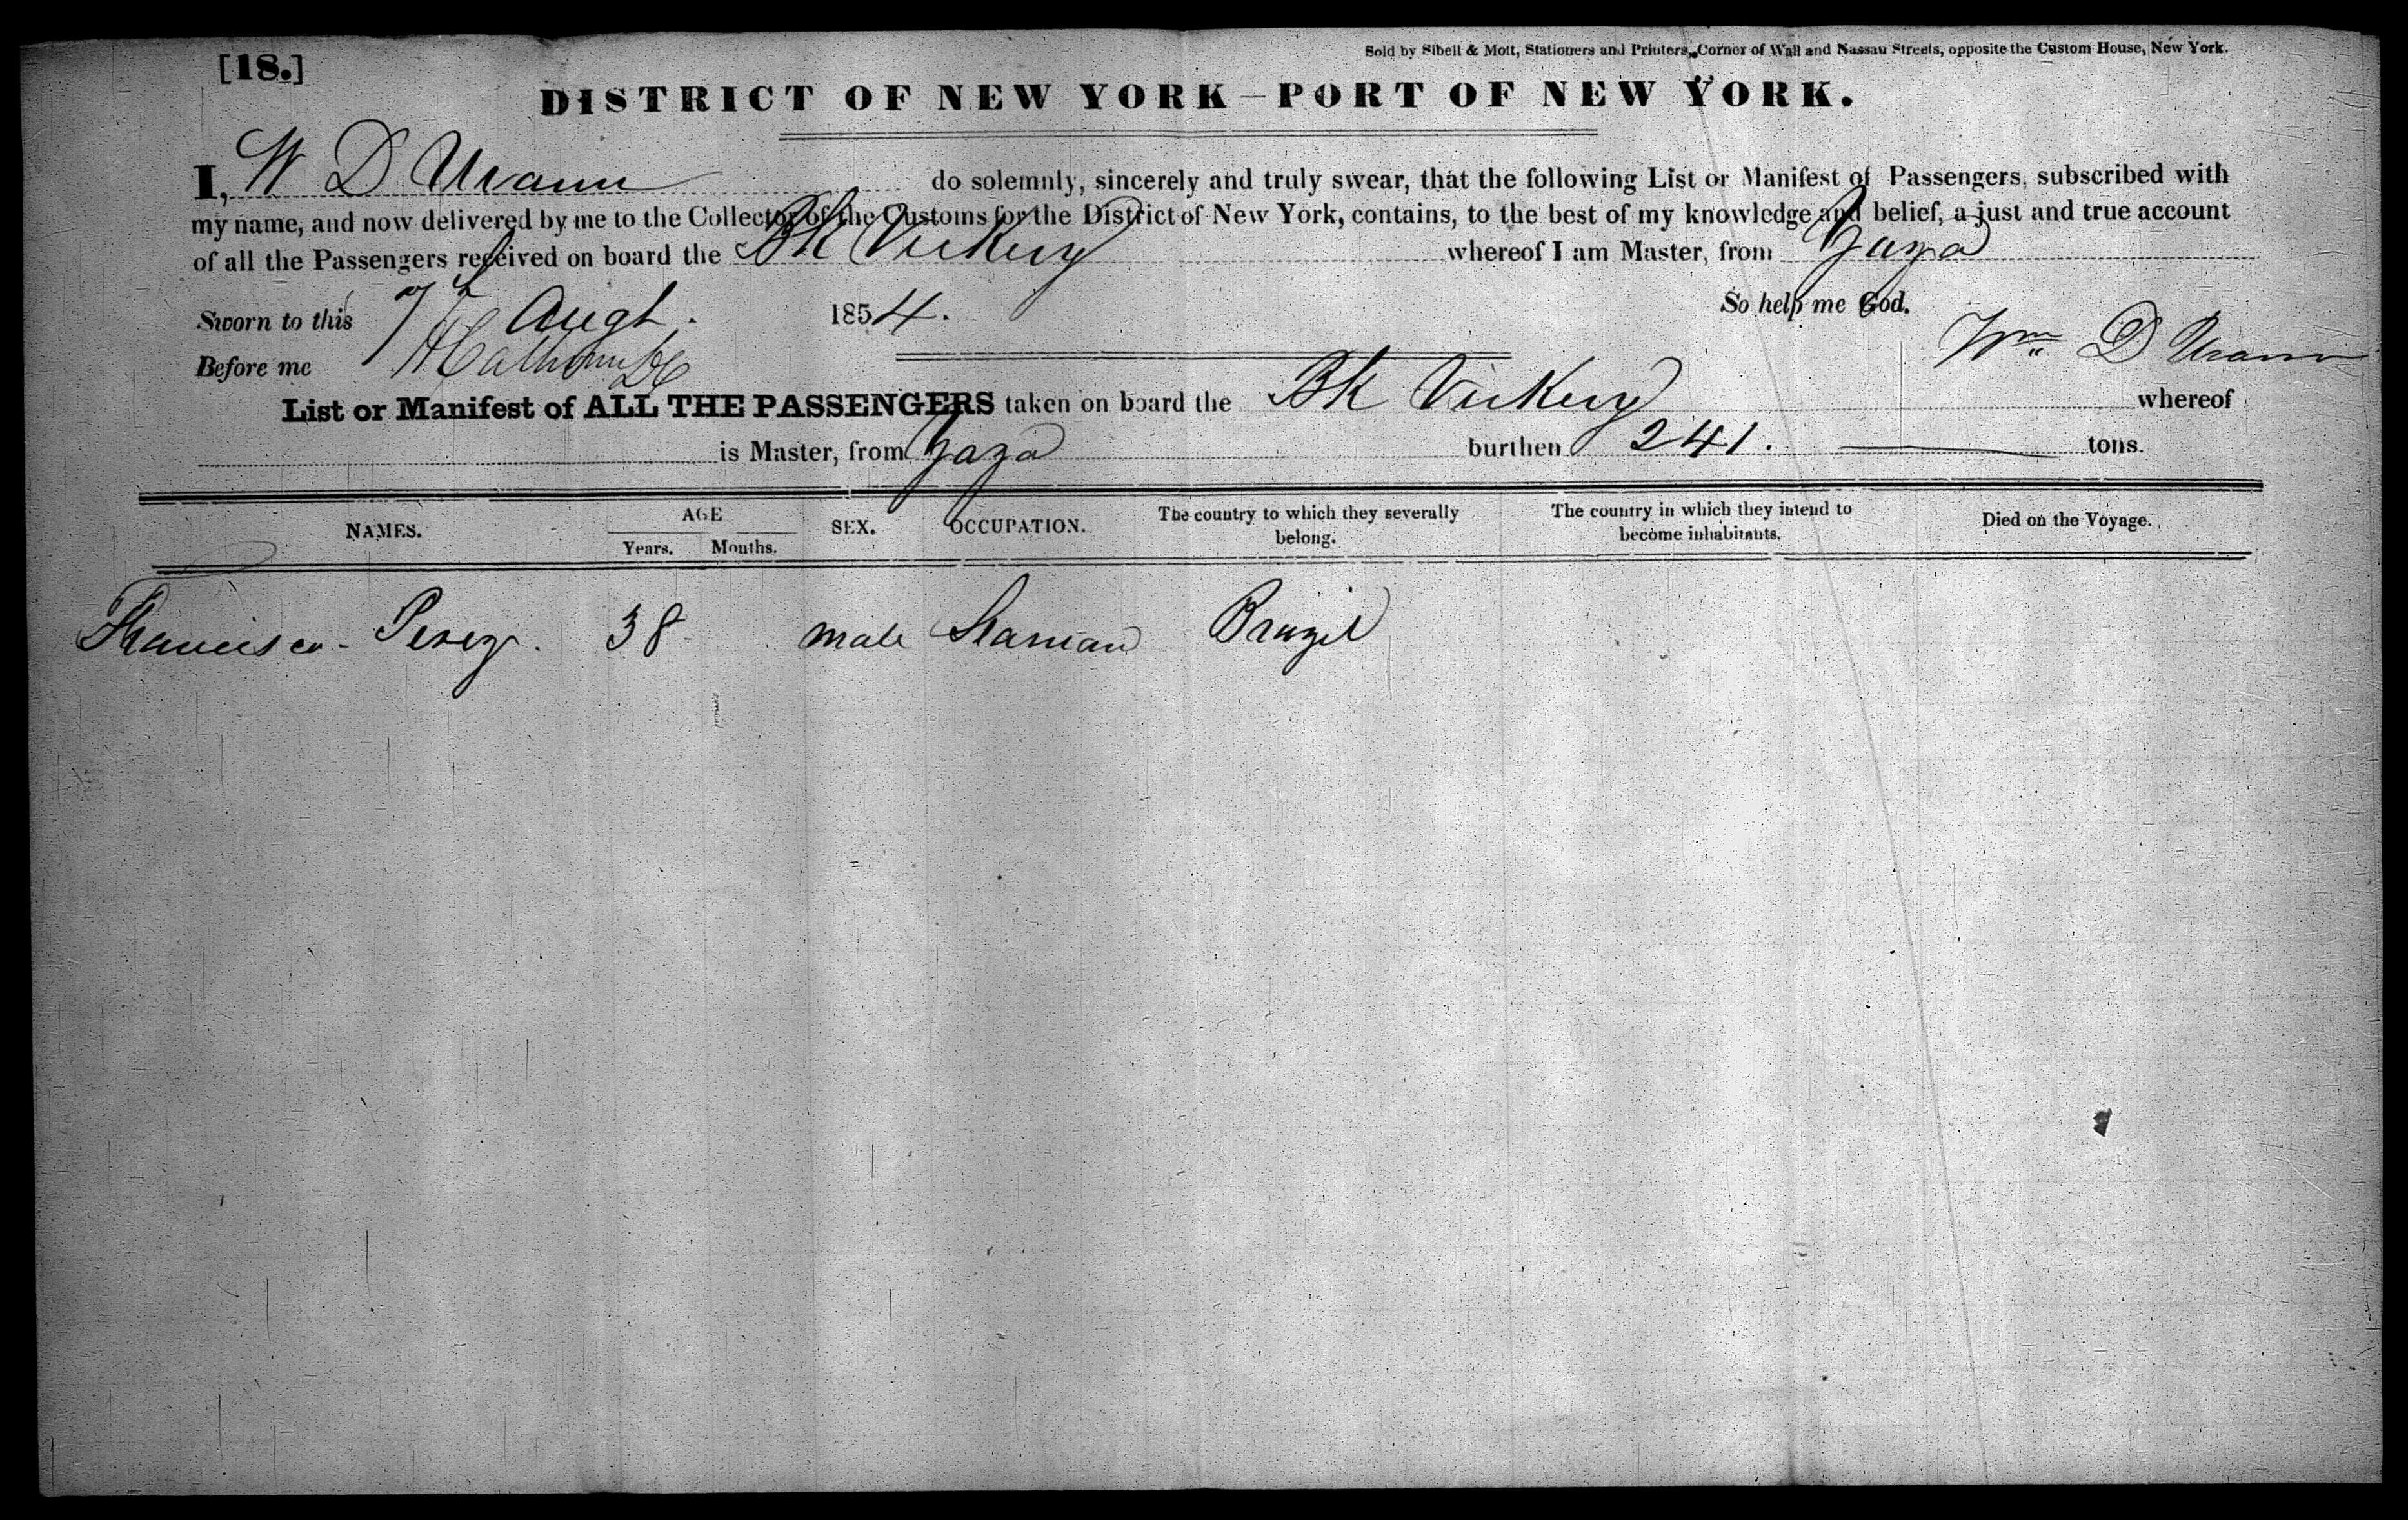 [18.]
Sold by Sibell & Mott, Stationers and Printers, Corner of Wall and Nassau Streets, opposite the Custom House, New York.
DISTRICT OF NEW YORK—PORT OF NEW YORK.
I, W D Urann do solemnly, sincerely and truly swear, that the following List or Manifest of Passengers, subscribed with
my name, and now delivered by me to the Collector of the Customs for the District of New York, contains, to the best of my knowledge and belief, a just and true account
of all the Passengers received on board the Bk Vickery whereof I am Master, from Zaza
Sworn to this 7th Augt. 1854. So help me God.
Before me Wm D Urann
List or Manifest of ALL THE PASSENGERS taken on board the Bk Vickery whereof
is Master, from Zaza burthen 241. tons.
NAMES. AGE Years. Months. SEX. OCCUPATION. The country to which they severally belong. The country in which they intend to become inhabitants. Died on the Voyage.
Francisco Perez. 38 male Seaman Brazil